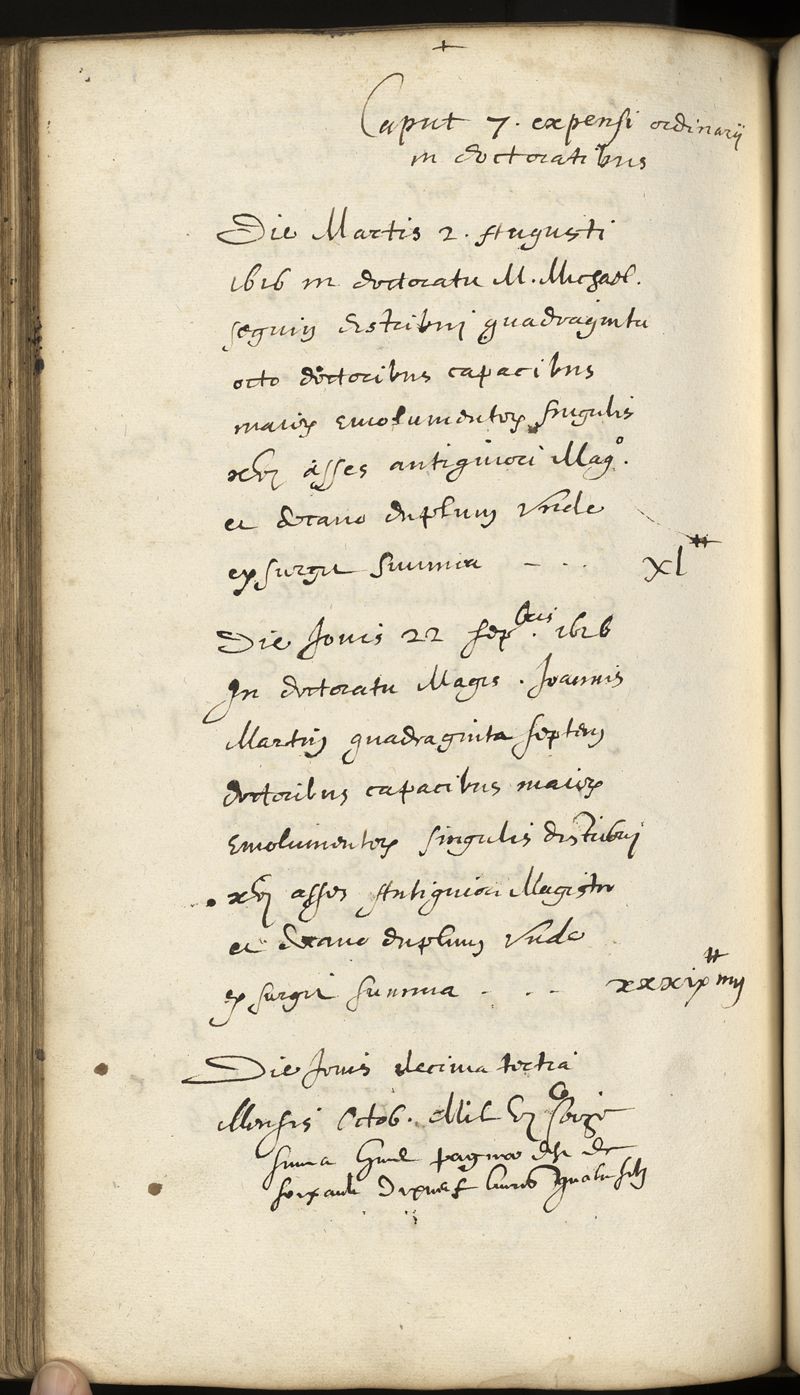 +
Caput 7. expensi ordinarij
in doctoratibus
Die Martis 2. Augusti
1616 in doctoratu M. Michael.
Seguin distribui quadraginta
octo doctoribus capacibus
maior emolumentor singulis
xvj asses antiquiori Mago.
et decano duplum Unde
exsurgit summa - . . xl ₶
Die Jovis 22 sepbris. 1616
In doctoratu Magis. Joannis
Martin quadraginta septem
doctoribus capacibus maior
Emolumentor singulis distribui
xvj asses Antiquiori Magistro
et decano duplum Unde
exsurgit summa - . - xxxix ₶ iiij
Die Jovis decima tertia
Mensis Octob. Mil vj Seize
summa huius paginae est de
soixante dixneuf livres quatre